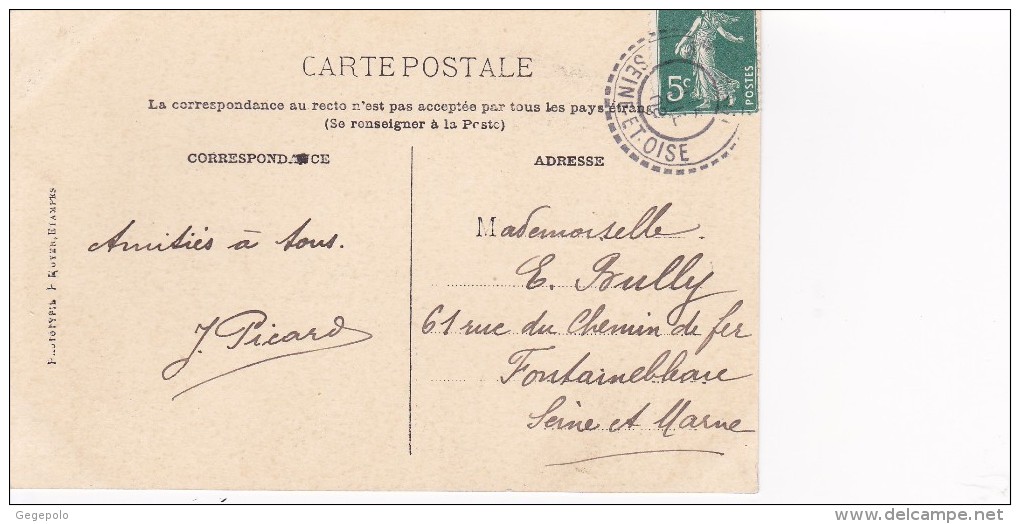 CARTE POSTALE
La correspondance au recto n'est pas acceptée par tous les pays étrang
(Se renseigner à la Poste)
CORRESPONDANCE
ADRESSE
5c
POSTES
SEINE-ET-OISE
Amitiés à tous.
J. Picard
Mademoiselle
E. Bully
61 rue du Chemin de fer
Fontainebleau
Seine et Marne
PHOTOTYPIE ROYER, ETAMPES
Gegepolo
www.delcampe.net